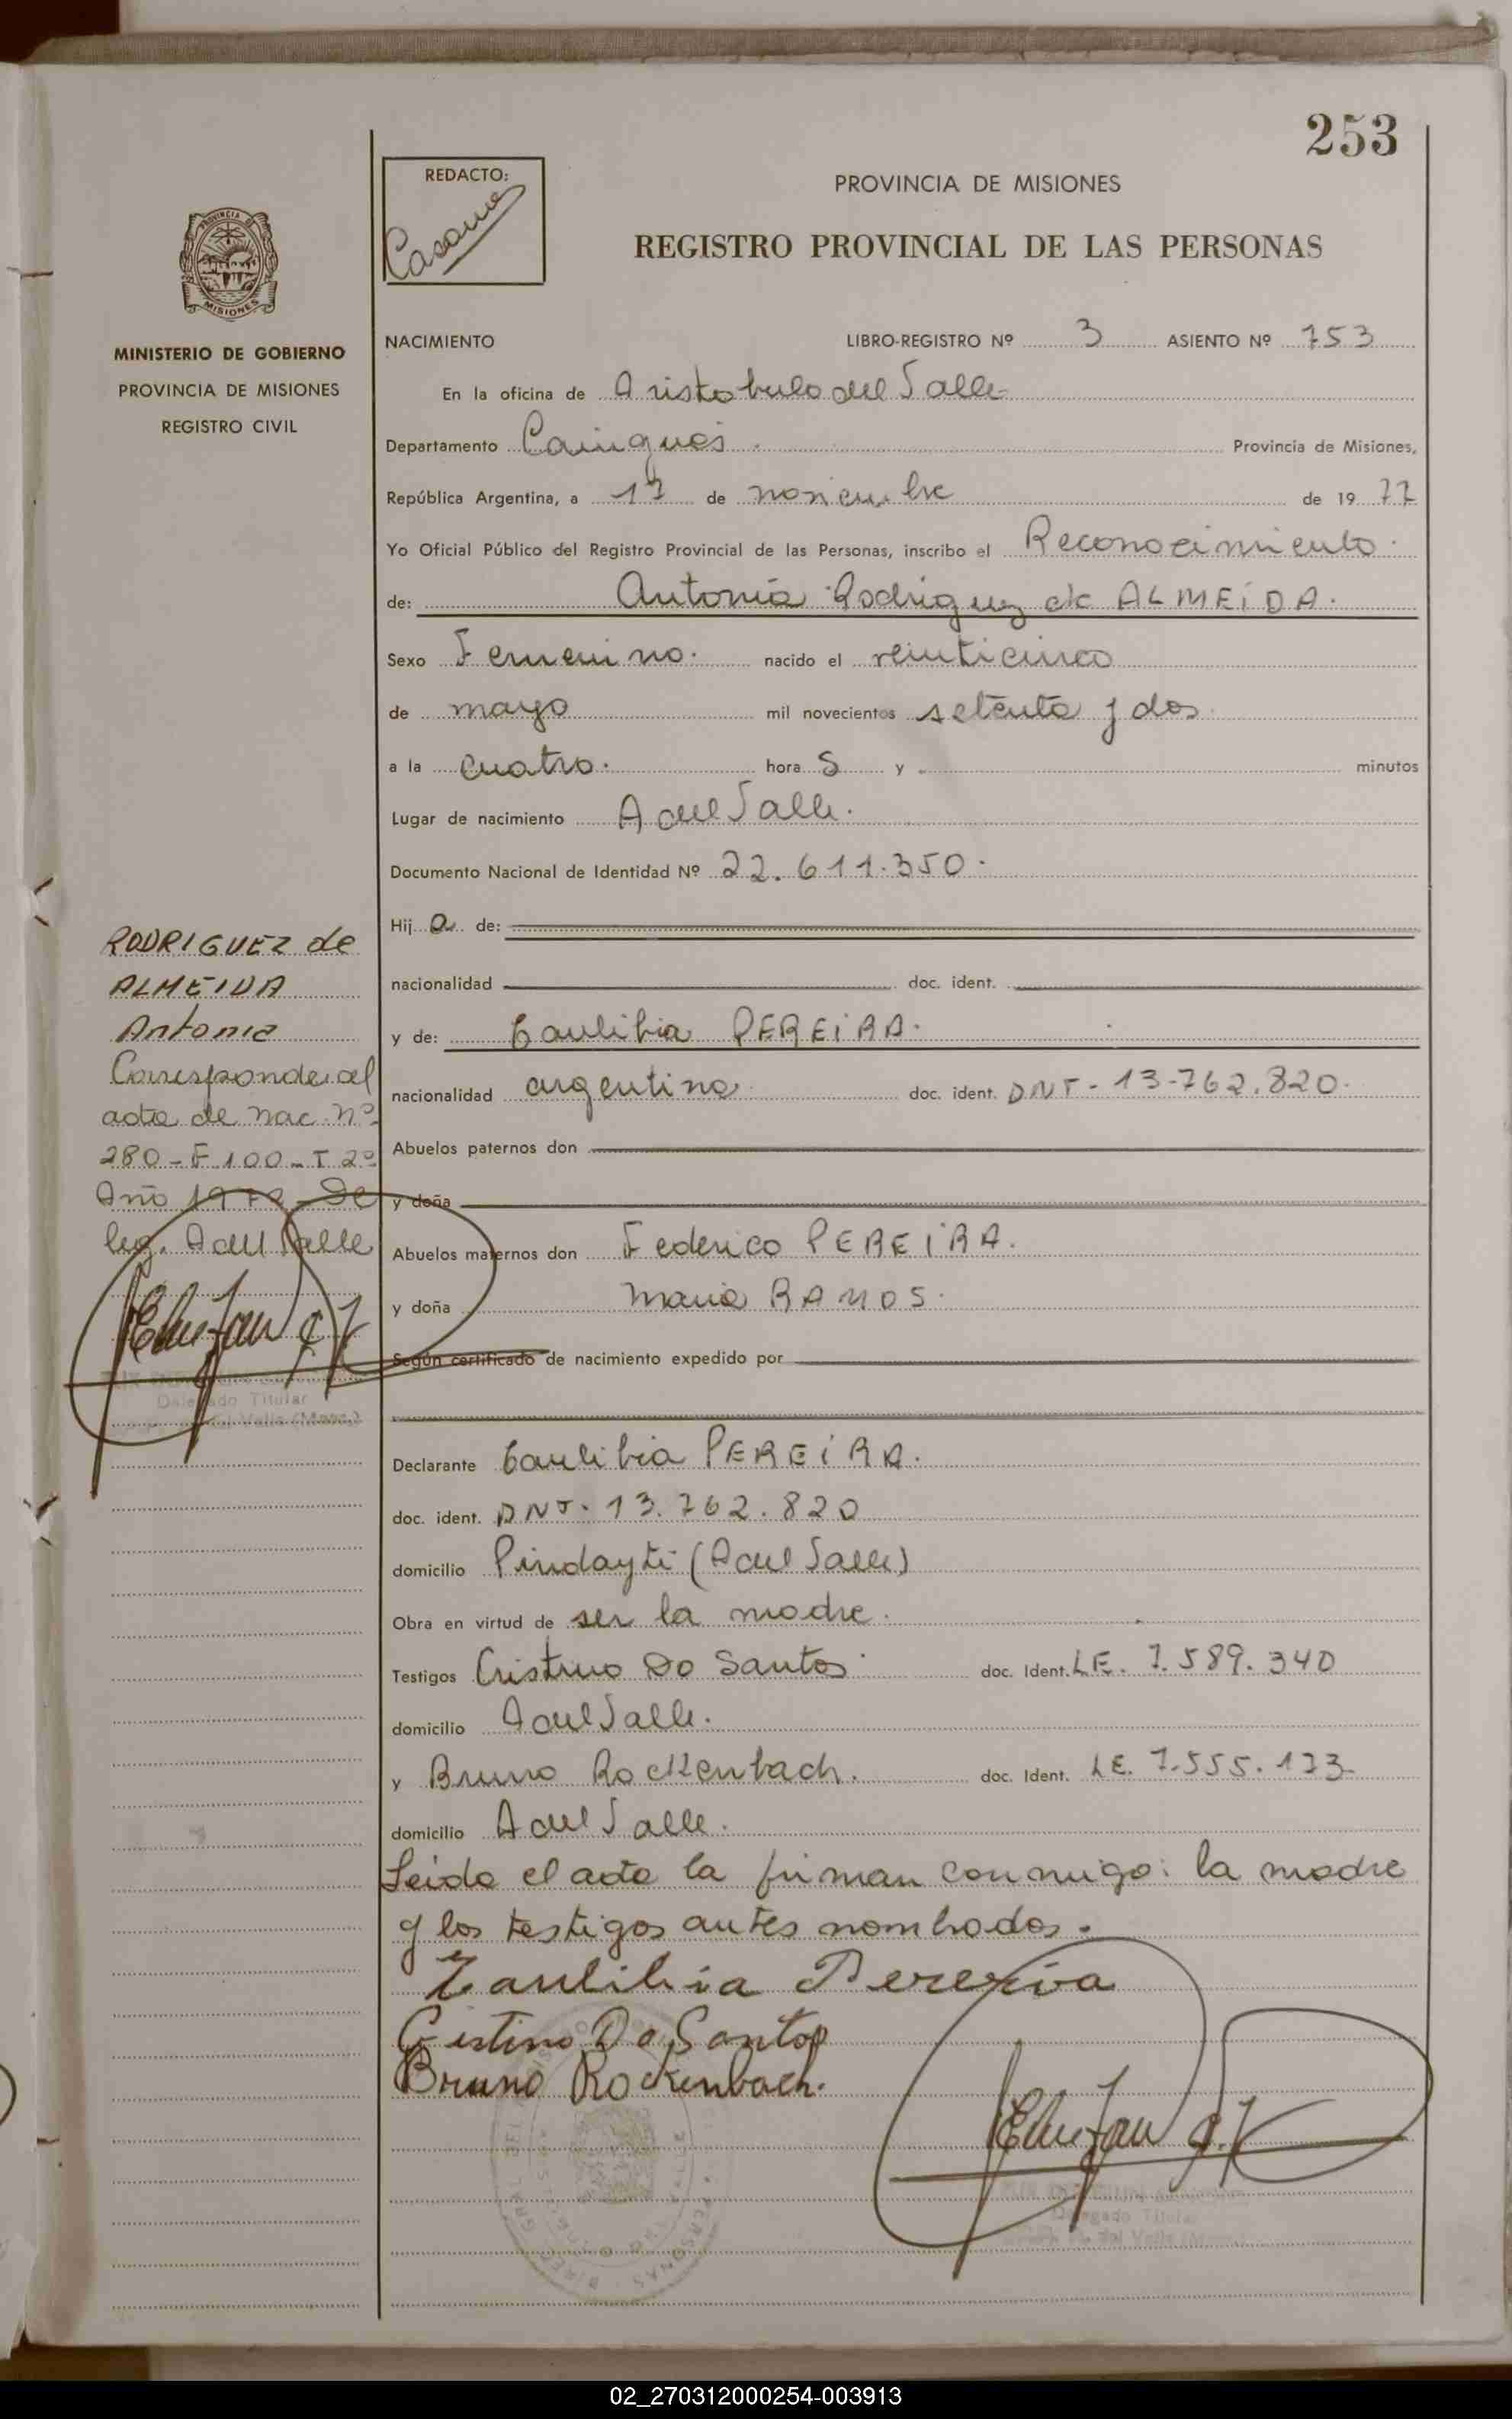 253
REDACTO:
PROVINCIA DE MISIONES
REGISTRO PROVINCIAL DE LAS PERSONAS
PROVINCIA DE
MISIONES
MINISTERIO DE GOBIERNO
PROVINCIA DE MISIONES
REGISTRO CIVIL
NACIMIENTO LIBRO-REGISTRO Nº 3 ASIENTO Nº 753
En la oficina de Aristobulo del Valle
Departamento Cainguás. Provincia de Misiones,
República Argentina, a 17 de noviembre de 1977
Yo Oficial Público del Registro Provincial de las Personas, inscribo el Reconocimiento.
de: Antonia Rodriguez de ALMEIDA.
Sexo Femenino. nacido el veinticinco
de mayo mil novecientos setenta y dos
a la cuatro. hora s y minutos
Lugar de nacimiento A del Valle.
Documento Nacional de Identidad Nº 22.611.350.
Hij a de:
nacionalidad doc. ident.
y de: PEREIRA.
nacionalidad argentina doc. ident. DNI-13-762.820.
Abuelos paternos don
y doña
Abuelos maternos don Federico PEREIRA.
y doña Maria RAMOS.
Según certificado de nacimiento expedido por
Declarante PEREIRA.
doc. ident. DNI. 13.762.820
domicilio Pindayti (A del Valle)
Obra en virtud de ser la madre.
Testigos Cristino Do Santos doc. Ident. LE. 7.589.340
domicilio A del Valle.
y Bruno Rockenbach. doc. Ident. LE. 7.555.173
domicilio A del Valle.
Leida el acta la firman conmigo: la madre
y los testigos antes nombrados.
Pereira
Cristino Do Santos
Bruno Rockenbach.
RODRIGUEZ de
ALMEIDA
Antonia
Corresponde al
acta de nac. Nº
280-F 100-T 2º
Año 1972 De
leg. A del Valle
Delegado Titular
del Valle (Mnes.)
Delegado Titular
del Valle (Mnes.)
02_270312000254-003913